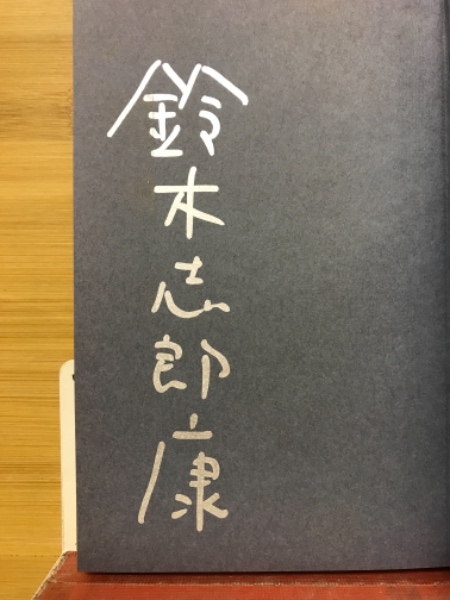 鈴木志郎康